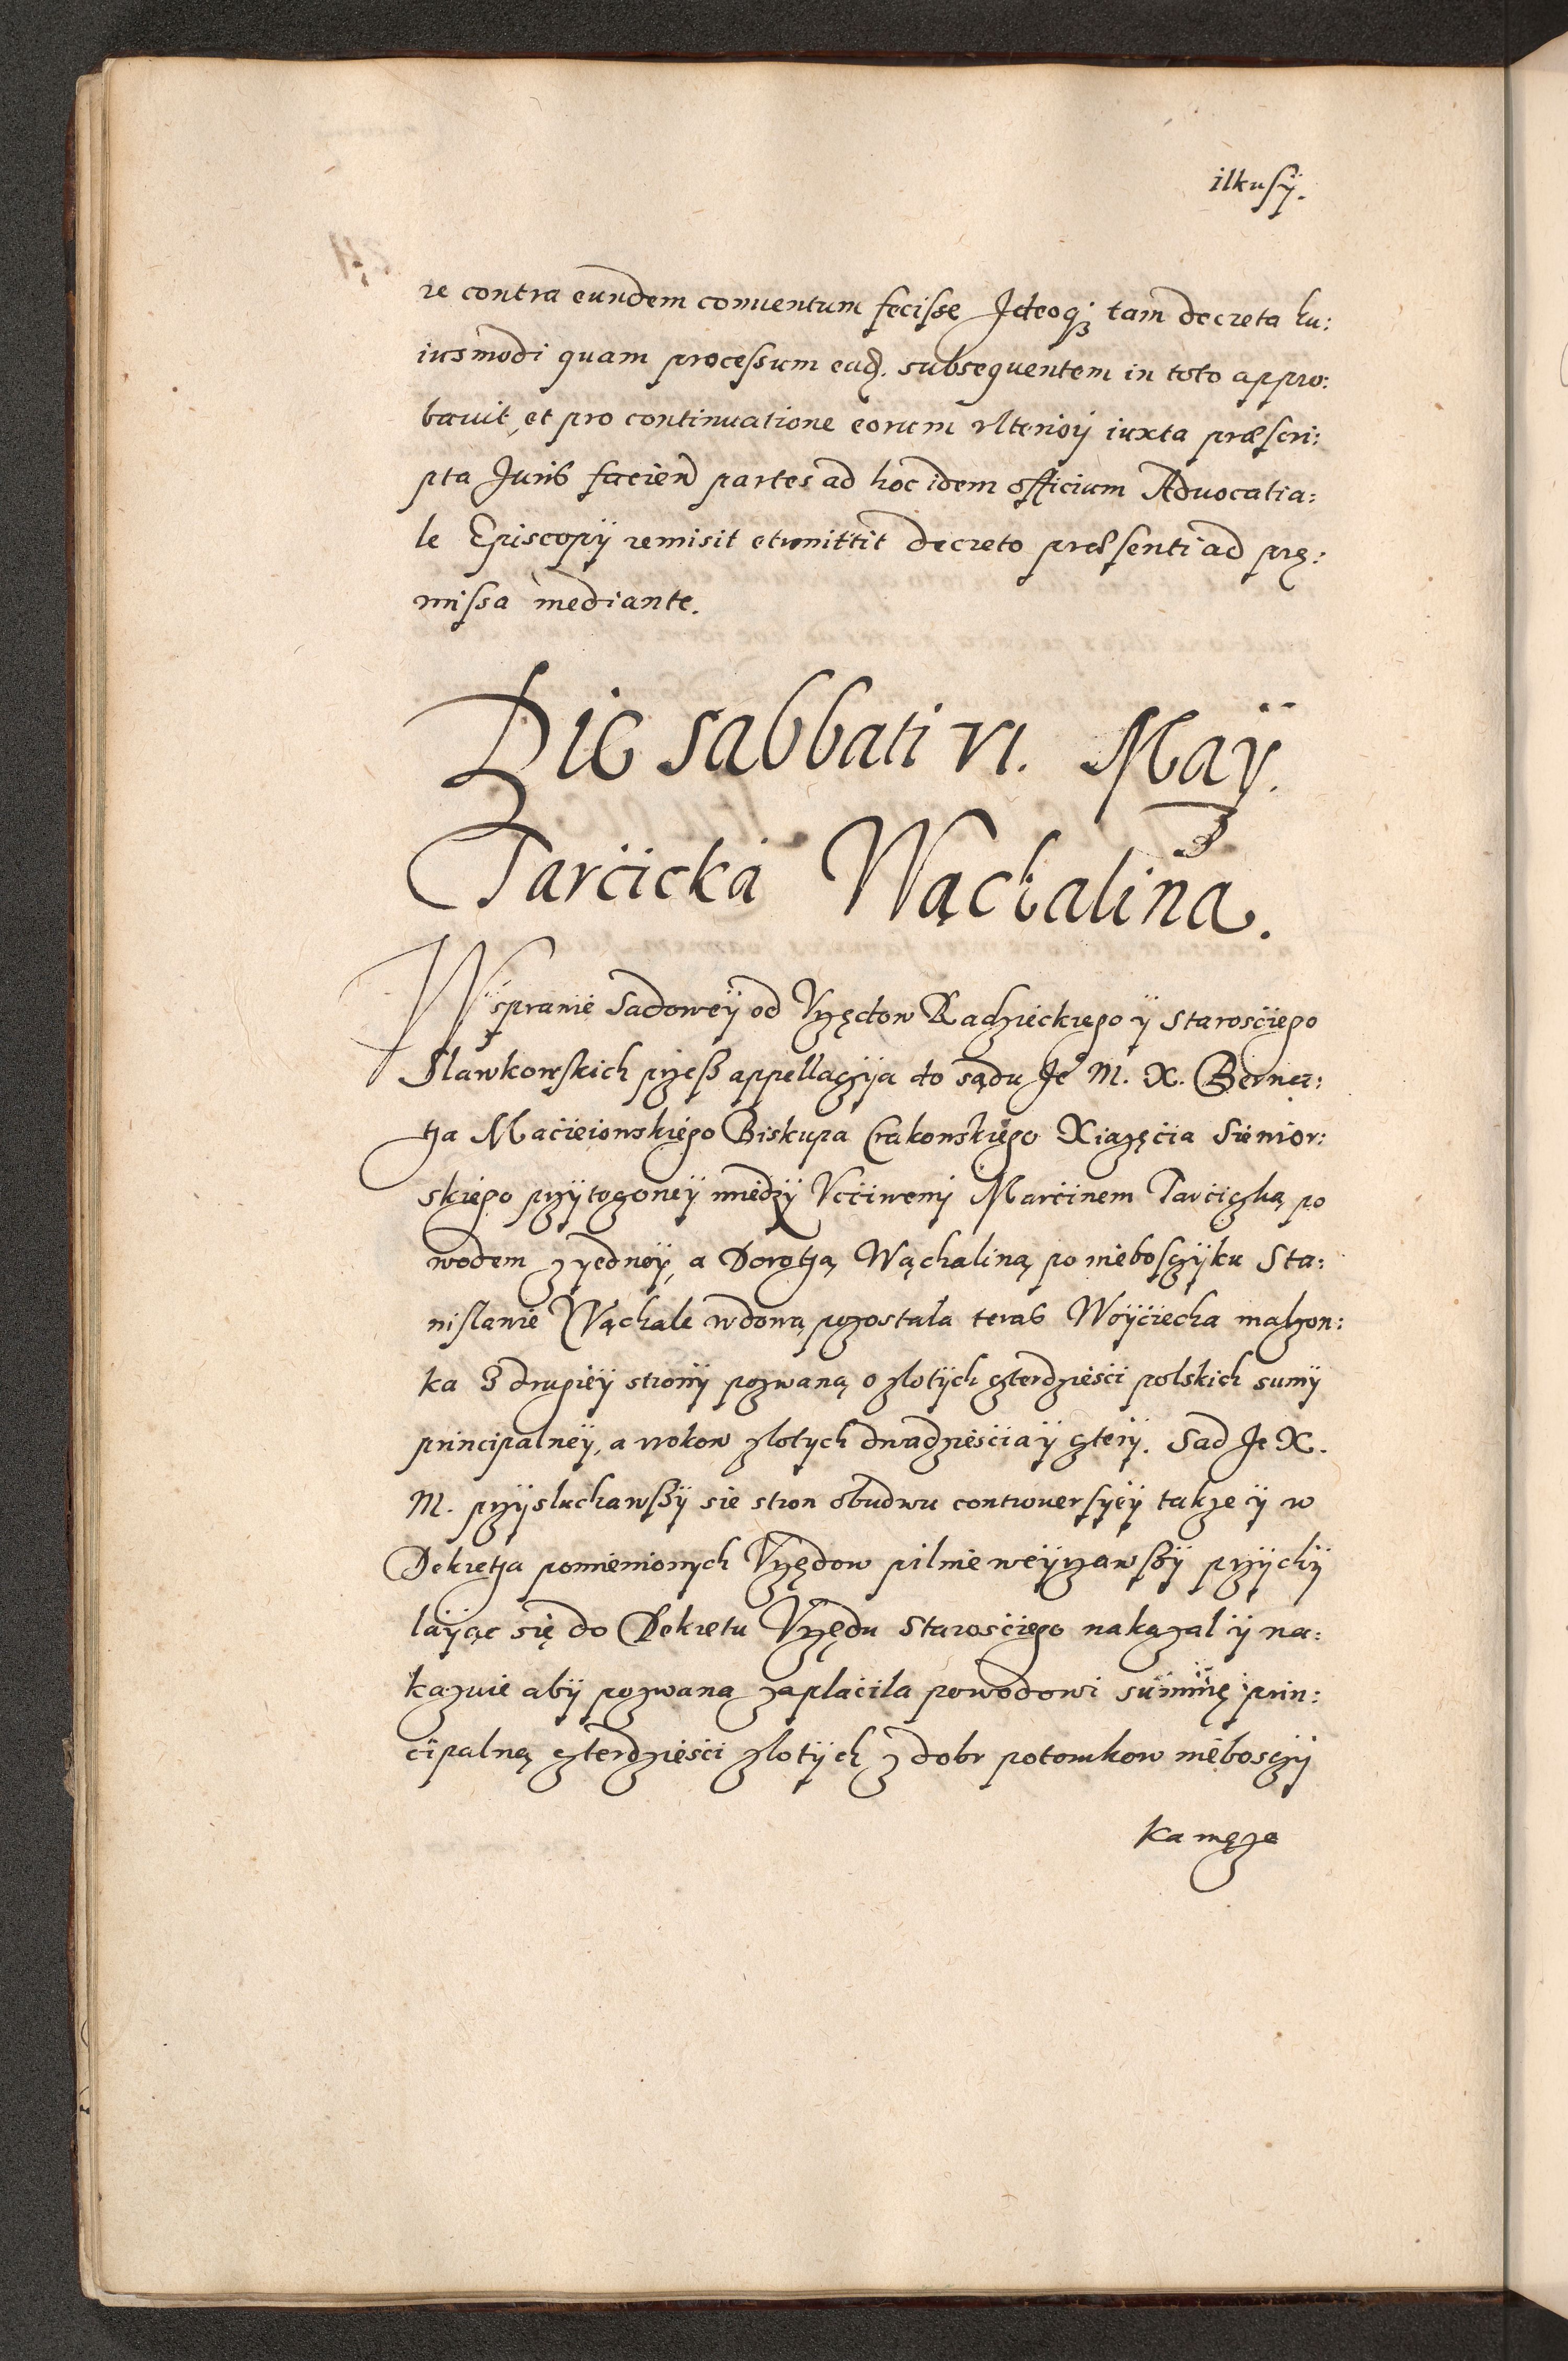 ilkusÿ.
re contra eundem conuentum fecisse Ideoq3 tam decreta hu:
iusmodi quam processum ead. subsequentem in toto appro:
bauit, et pro continuatione eorum vlteriori iuxta præscri:
pta Juris faciend partes ad hoc idem officium Advocatia:
le Episcopÿ remisit et remittit decreto præsenti ad prę:
missa mediante.
Die sabbati VI. Maÿ.
Tarcicka Wąchalina.
W sprawie sadoweÿ od Vrzędow Radzieckiego ÿ Starosciego
Slawkowskich przeß appellaczÿa do sądu Je M. X. Berner:
tha Macieiowskiego Biskupa Crakowskiego Xiazęcia Siewior:
skiego przÿtoczoneÿ miedzÿ Vcciwemj Marcinem Tarciczką po
wodem z yedneÿ, a Dorothą Wąchaliną po nieboszczÿku Sta:
nislawie Wąchale wdową pozostala teras Woÿciecha malzon:
ka z drugieÿ stronÿ pozwaną o zlotÿch czterdziesci polskich sumÿ
principalneÿ, a vrokow zlotych dwadziescia ÿ czterÿ. Sad Je X.
M. przÿsluchawßÿ sie stron obudwu controuersÿeÿ takze ÿ w
Dekretha pomienionych Vrzędow pilnie weÿzrzawßÿ przÿchÿ
laÿąc się do Dekretu Vrzędu Starosciego nakazal ÿ na:
kazuie abÿ pozwana zaplacila powodowi summę prin:
cipalną czterdziesci zlotÿch z dobr potomkow nieboszczÿ
ka męza